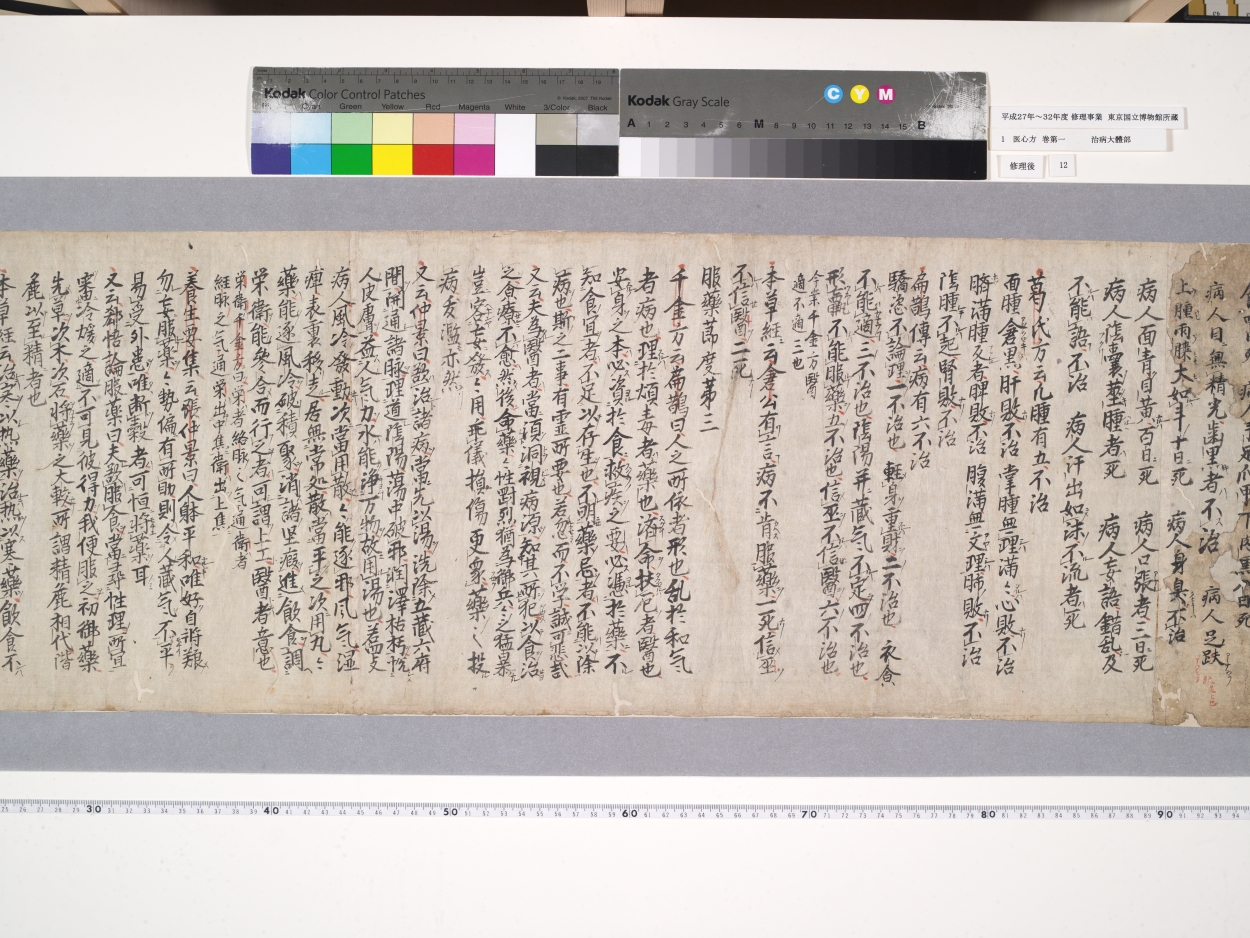 Kodak Color Control Patches
Cyan Green Yellow Red Magenta White 3/Color Black
Kodak Gray Scale
C Y M
A 1 2 3 4 5 6 M 8 9 10 11 12 13 14 15 B
平成27年～32年度 修理事業 東京国立博物館所蔵
1 医心方 巻第一 治病大體部
修理後 12
病人目無精光齒黑者不治 病人足趺
上腫兩膝大如斗十日死 病人身臭不治
病人面青目黄五百日死 病人口張者三日死
病人陰囊莖腫者死 病人妄語錯乱及
不能語不治 病人汗出如沫不流者死
葛氏方云凢腫有五不治
面腫倉黑肝敗不治 掌腫無理滿〻心敗不治
臍滿腫反者脾敗不治 腹滿無文理肺敗不治
陰腫不起腎敗不治
扁鵲傳云病有六不治
驕恣不論理一不治也 輕身重財二不治也 衣食
不能適三不治也 陰陽并藏气不定四不治也
形羸不能服藥五不治也 信巫不信醫六不治也
今案千金方醫
本草經云倉公有言病不肯服藥一死信巫
不信醫二死
服藥莭度苐三
千金方云扁鵲曰人之所依者形也乱於和气
者病也理於煩毒者藥也濟命扶厄者醫也
安身之本必資於食救疾之要必憑於藥不
知食宜者不足以存生也不明藥忌者不能以除
病也斯之二事有靈所要也若忽而不學誠可悲哉
又云夫為醫者當須洞視病源知其所犯以食治
之食療不愈然後命藥〻性對烈猶為御兵〻之猛暴
豈容妄發〻用乖儀損傷更衆藥〻投
病夭濫亦然
又云仲景曰欲治諸病當先以湯洗除五藏六府
開通諸脉理道陰陽蕩中破邪潤澤枯朽悅
人皮膚益人气力水能淨万物故用湯也若四支
病人風冷發動次當用散〻能逐邪風气溼
痺表裏移走居無常处散當平之次用丸〻
藥能逐風冷破積聚消諸堅癥進飲食調
榮衛能參合而行之者可謂上工醫者意也
養生要集云張仲景曰人躰平和唯好自將粮
勿妄服藥〻勢偏有所助則令人藏气不平
易受外患唯断穀者可恒將藥耳
又云郄愔論服藥曰夫欲服食當尋性理所宜
審冷煖之適不可見彼得力我便服之初御藥
先草次木次石將藥之大較所謂精麁相代階
麁以至精者也
本草經云治寒以热藥治热以寒藥飲食不